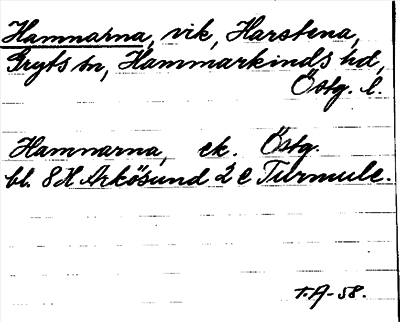 Hamnarna, vik, Harstena,
Gryts sn, Hammarkinds hd,
Östg. l.
Hamnarna, ek. Östg.
bl. 8H Arkösund 2 e Turmulc.
T.A-58.